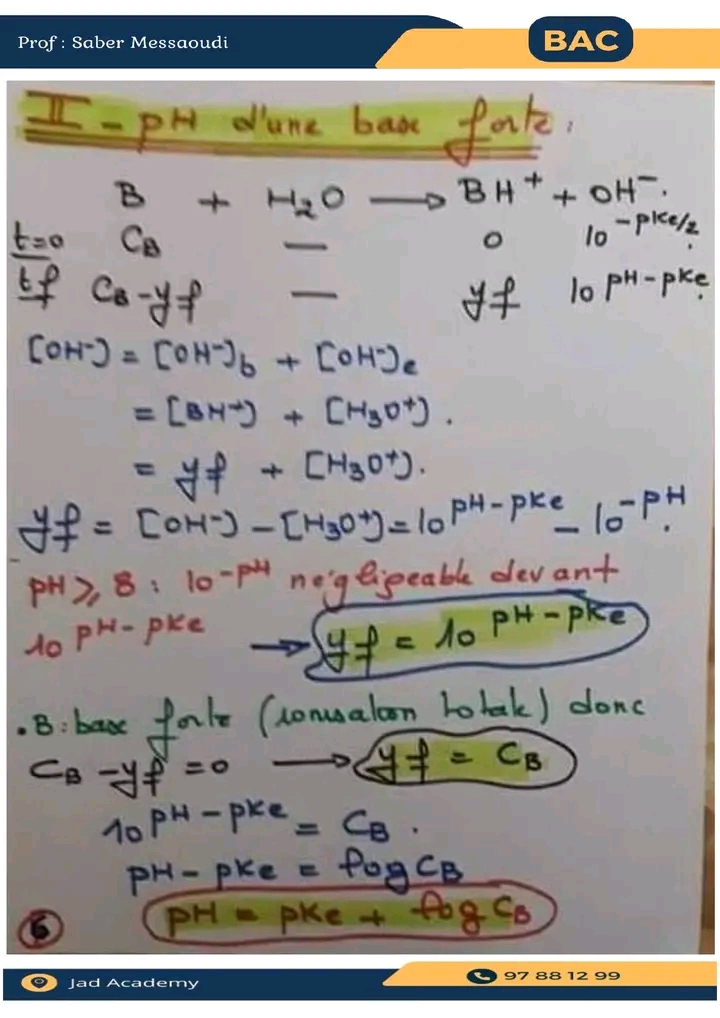 Prof : Saber Messaoudi
BAC
II - pH d'une base forte :
B + H₂O → BH⁺ + OH⁻.
t=0 C_B — 0 10^-pKe/2
tf C_B-yf — yf 10^pH-pKe
[OH⁻] = [OH⁻]b + [OH⁻]e
= [BH⁺] + [H₃O⁺].
= yf + [H₃O⁺].
yf = [OH⁻] - [H₃O⁺] = 10^pH-pKe - 10^-pH.
pH ⩾ 8 : 10^-pH négligeable devant
10^pH-pKe → yf = 10^pH-pKe
. B : base forte (ionisation totale) donc
C_B - yf = 0 → yf = C_B
10^pH-pKe = C_B.
pH - pKe = log C_B
pH = pKe + log C_B
6
Jad Academy
97 88 12 99